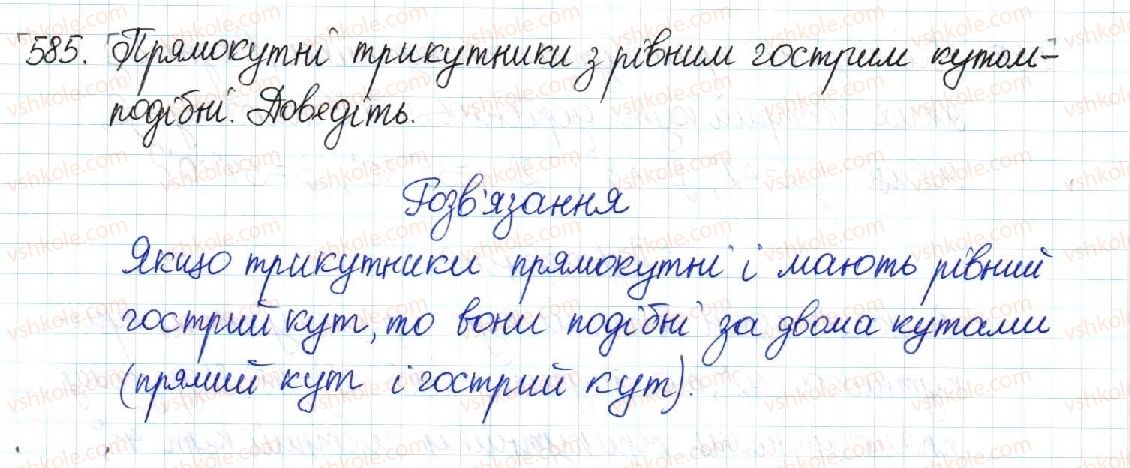 585. Прямокутні трикутники з рівним гострим кутом -
подібні. Доведіть.
Розв'язання
Якщо трикутники прямокутні і мають рівний
гострий кут, то вони подібні за двома кутами
(прямий кут і гострий кут).